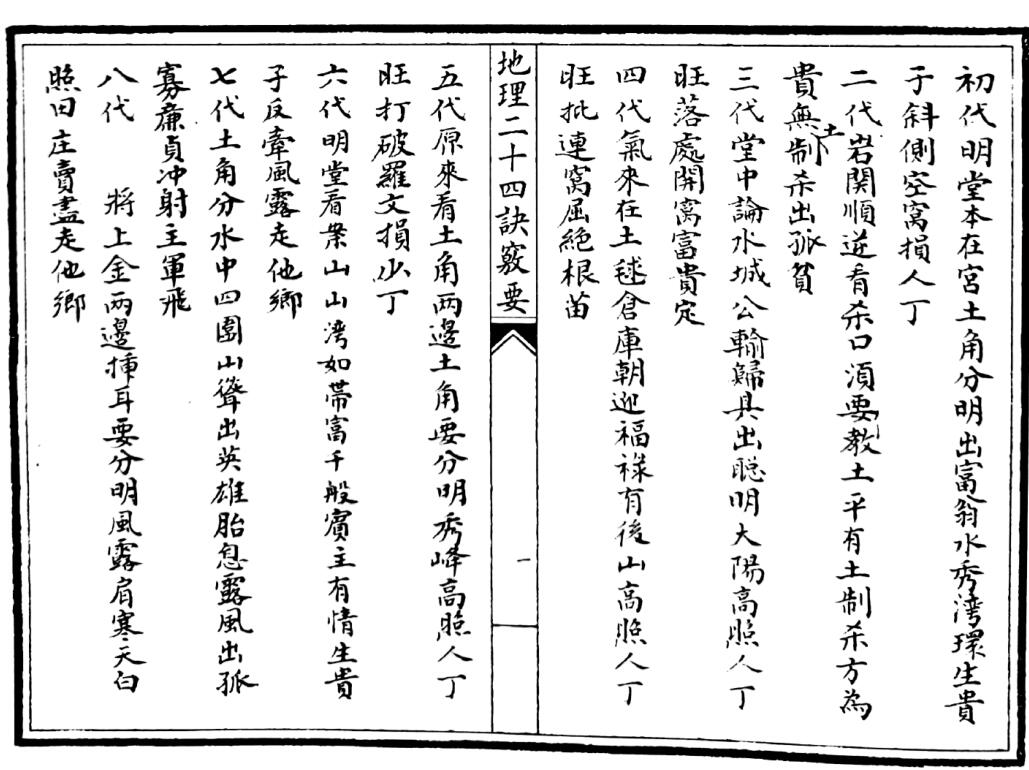 初代明堂本在宮土角分明出富翁水秀湾環生貴
于斜側空窩損人丁
二代岩関順逆看杀口須要教土平有土制杀方為
貴無土制杀出孤貧
三代堂中論水城公輸歸具出聡明太陽高照人丁
旺落處開窩富貴定
四代氣來在土毬倉庫朝迎福祿有後山高照人丁
旺批連窩屈絶根苗
地理二十四訣竅要
一
五代原來看土角两邊土角要分明秀峰高照人丁
旺打破羅文損少丁
六代明堂看案山山湾如带富千般賓主有情生貴
子反牽風露走他鄉
七代土角分水中四圍山聳出英雄胎息露風出孤
寡廉貞冲射主軍飛
八代　將上金两邊揷耳要分明風露肩寒天白
照田庄賣盡走他鄉